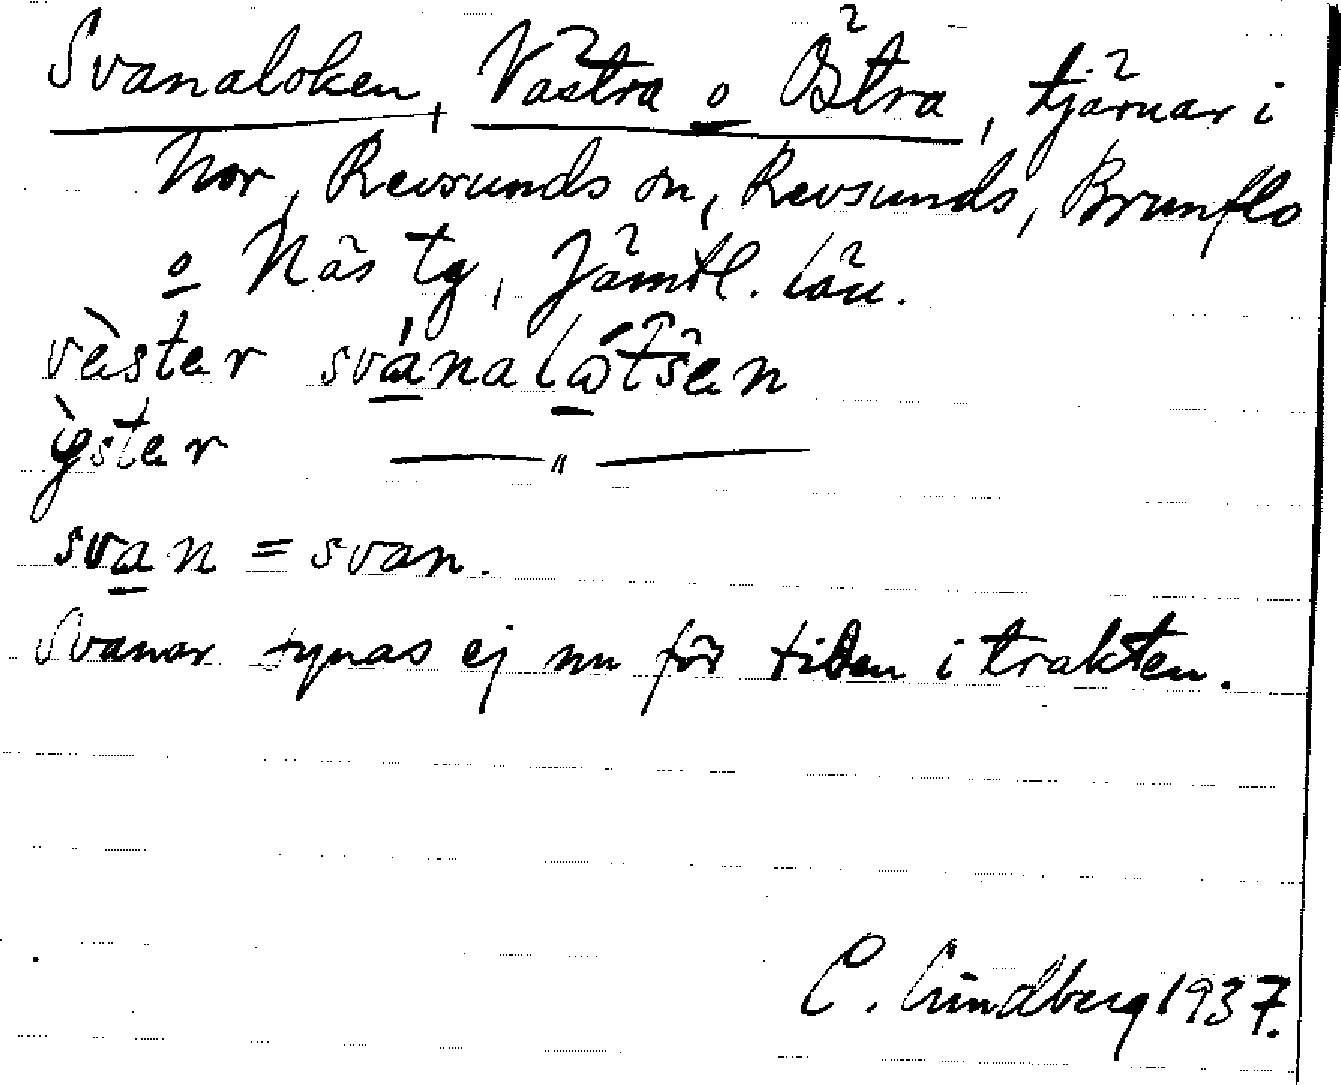 Svanaloken, Västra o Östra, tjärnar i
Nor, Revsunds sn, Revsunds, Brunflo
o Näs tg, Jämtl. län.
vèster svánalótsen
ỳster — " —
svan = svan.
Svanar synas ej nu för tiden i trakten.
C. Lindberg 1937.